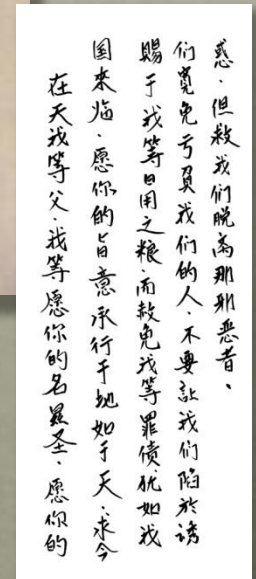 在天我等父、我等愿你的名显圣、愿你的
国來临、愿你的旨意承行于地如于天、求今
赐于我等日用之粮、而赦免我等罪债犹如我
们宽免亏負我们的人、不要让我们陷於诱
惑、但救我们脱离那邪恶者、